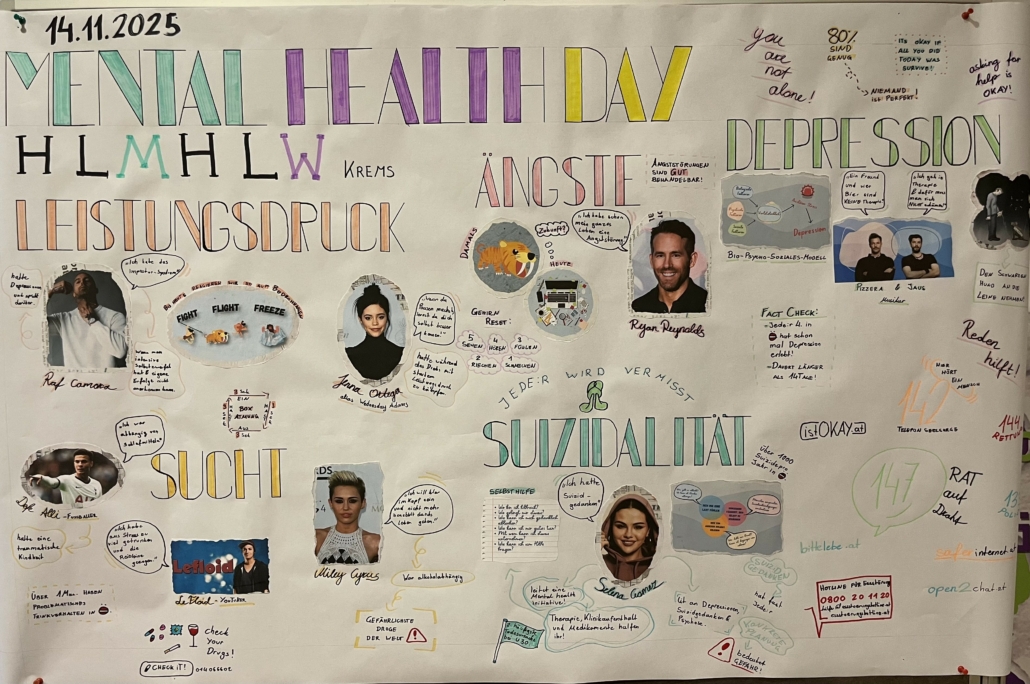 14.11.2025
MENTAL HEALTH DAY
HLMHLW KREMS
you
are
not
alone!
80%
SIND
GENUG
NIEMAND
IST PERFEKT!
ITS OKAY IF
ALL YOU DID
TODAY WAS
SURVIVE!
asking for
help is
OKAY!
LEISTUNGSDRUCK
hatte
Depressionen
und
darüber
„Ich habe das
Impostor-Syndrom“
Raf Camora
FIGHT FLIGHT FREEZE
wenn man
intensive
Selbstzweifel
hat & eigene
Erfolge nicht
anerkennen kann
Jenna Ortega
alias Wednesday Adams
hatte während
des Drehs mit
starkem
Leistungsdruck
zu kämpfen
EIN
BOX
ATMUNG
AUS
ÄNGSTE
ANGSTSTÖRUNGEN
SIND GUT
BEHANDELBAR!
DAMALS
Zukunft?
HEUTE
„Ich habe schon
mein ganzes
Leben eine
Angststörung“
Ryan Reynolds
GEHIRN
RESET:
5
SEHEN
4
HÖREN
3
FÜHLEN
2
RIECHEN
1
SCHMECKEN
DEPRESSION
Depression
Bio-Psycho-Soziales-Modell
„Ein Freund
und vier
Bier sind
KEINE Therapie“
„Ich geh in
Therapie
& dafür muss
man sich
NICHT schämen“
PIZZERA & JAUS
Musiker
DEN SCHWARZEN
HUND AN DIE
LEINE NEHMEN
FACT CHECK:
- Jede:r 4. in
hat schon
mal Depression
erlebt!
- DAUERT LÄNGER
ALS 14 TAGE!
Reden
hilft!
NUR
HÖRT
EIN
MENSCH
142
TELEFON SEELSORGE
144
RETTUNG
istOKAY.at
147
RAT
auf
Draht
bittelebe.at
saferinternet.at
open2chat.at
HOTLINE FÜR ESSSTÖRUNG
0800 20 11 20
JEDE:R WIRD VERMISST
SUIZIDALITÄT
über 1000
Suizide pro
Jahr in
SELBSTHILFE
„Ich hatte
Suizid-
gedanken“
Selena Gomez
leitet eine
Mental Health
Initiative!
Therapie, Klinikaufenthalt
und Medikamente halfen
ihr!
litt an Depressionen,
Suizidgedanken &
Psychose
SUIZID
GEDANKEN
hat fast
Jede:r
KONKRETE
PLANUNG
bedeutet
GEFAHR!
SUCHT
„Ich war
abhängig von
Schlafmitteln“
Dele Alli - FUSSBALLER
hatte eine
traumatische
Kindheit
„Ich habe
aus Stress zu
viel getrunken
und die
Reißleine
gezogen“
LeFloid
LeFloid - YOUTUBER
ÜBER 1 Mio. HABEN
PROBLEMATISCHES
TRINKVERHALTEN IN
Check
Your
Drugs!
CHECK IT!
Miley Cyrus
„Ich will klar
im Kopf sein
und nicht mehr
benebelt durchs
Leben gehen“
War alkoholabhängig
GEFÄHRLICHSTE
DROGE
DER WELT